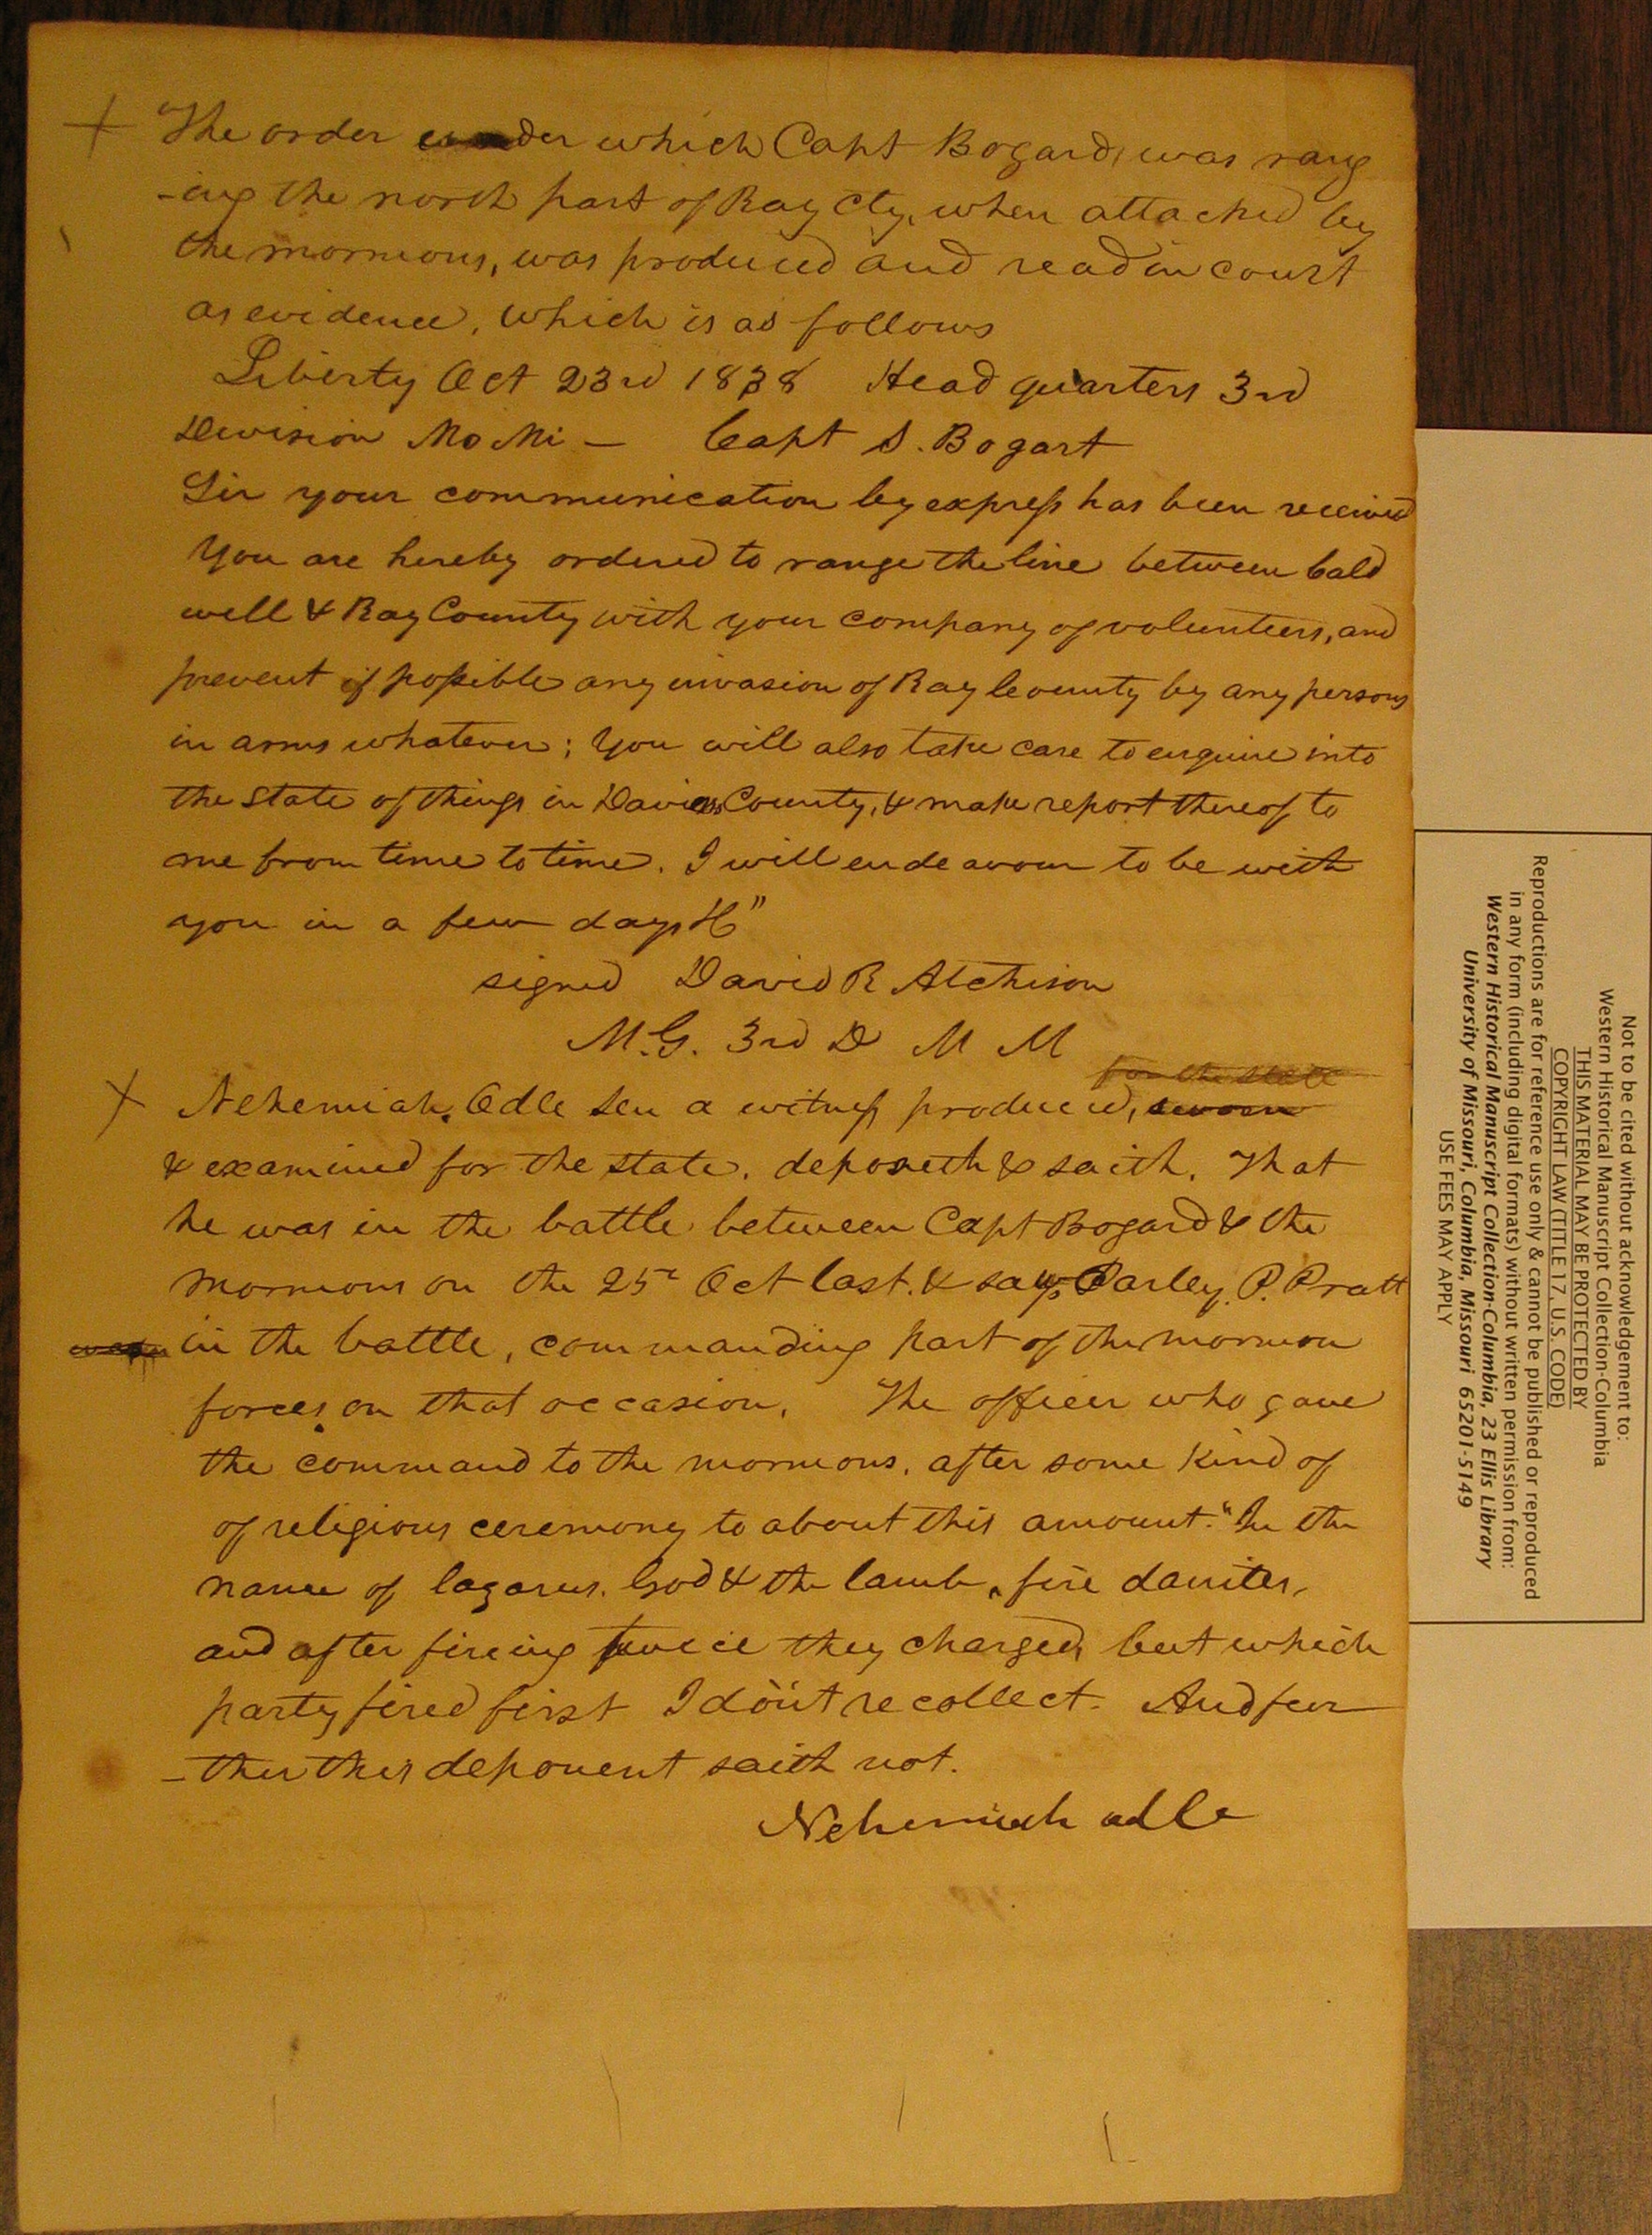 The order under which Capt Bogard, was rang
-ing the north part of Ray Cty, when attacked by
the mormons, was produced and read in court
as evidence, which is as follows
Liberty Oct 23rd 1838 Head quarters 3rd
Division Mo Mi — Capt S. Bogart
Sir your communication by express has been received
You are hereby ordered to range the line between Cald
well & Ray County with your company of volunteers, and
prevent if possible any invasion of Ray County by any persons
in arms whatever; You will also take care to enquire into
the state of things in Daviess County, & make report thereof to
me from time to time. I will endeavour to be with
you in a few days &c"
signed David R Atchison
M.G. 3rd D M M
for the state
+ Nehemiah Odle Sen a witness produced, sworn
& examined for the state, deposeth & saith. That
he was in the battle between Capt Bogard & the
mormons on the 25th Oct last. & saw Parley P. Pratt
in the battle, commanding part of the mormon
forces on that occasion. The officer who gave
the command to the mormons, after some kind of
of religious ceremony to about this amount. "In the
name of lazarus. God & the lamb, fire danites,
and after fireing twice they charged, but which
party fired first I don't recollect. And fur
-ther this deponent saith not.
Nehemiah odle
Not to be cited without acknowledgement to:
Western Historical Manuscript Collection-Columbia
THIS MATERIAL MAY BE PROTECTED BY
COPYRIGHT LAW (TITLE 17, U.S. CODE)
Reproductions are for reference use only & cannot be published or reproduced
in any form (including digital formats) without written permission from:
Western Historical Manuscript Collection-Columbia, 23 Ellis Library
University of Missouri, Columbia, Missouri 65201-5149
USE FEES MAY APPLY